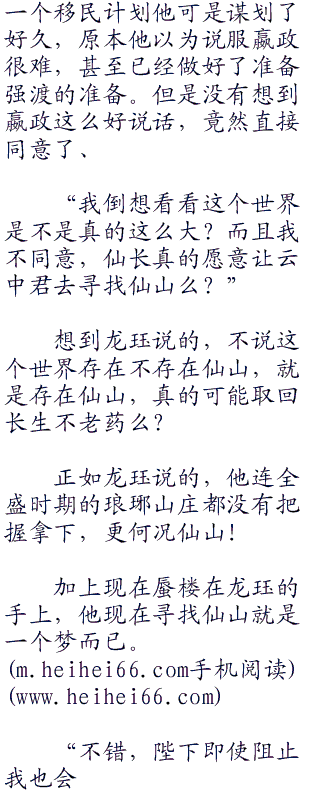 一个移民计划他可是谋划了
好久，原本他以为说服嬴政
很难，甚至已经做好了准备
强渡的准备。但是没有想到
嬴政这么好说话，竟然直接
同意了、
“我倒想看看这个世界
是不是真的这么大？而且我
不同意，仙长真的愿意让云
中君去寻找仙山么？”
想到龙珏说的，不说这
个世界存在不存在仙山，就
是存在仙山，真的可能取回
长生不老药么？
正如龙珏说的，他连全
盛时期的琅琊山庄都没有把
握拿下，更何况仙山！
加上现在蜃楼在龙珏的
手上，他现在寻找仙山就是
一个梦而已。
(m.heihei66.com手机阅读)
(www.heihei66.com)
“不错，陛下即使阻止
我也会